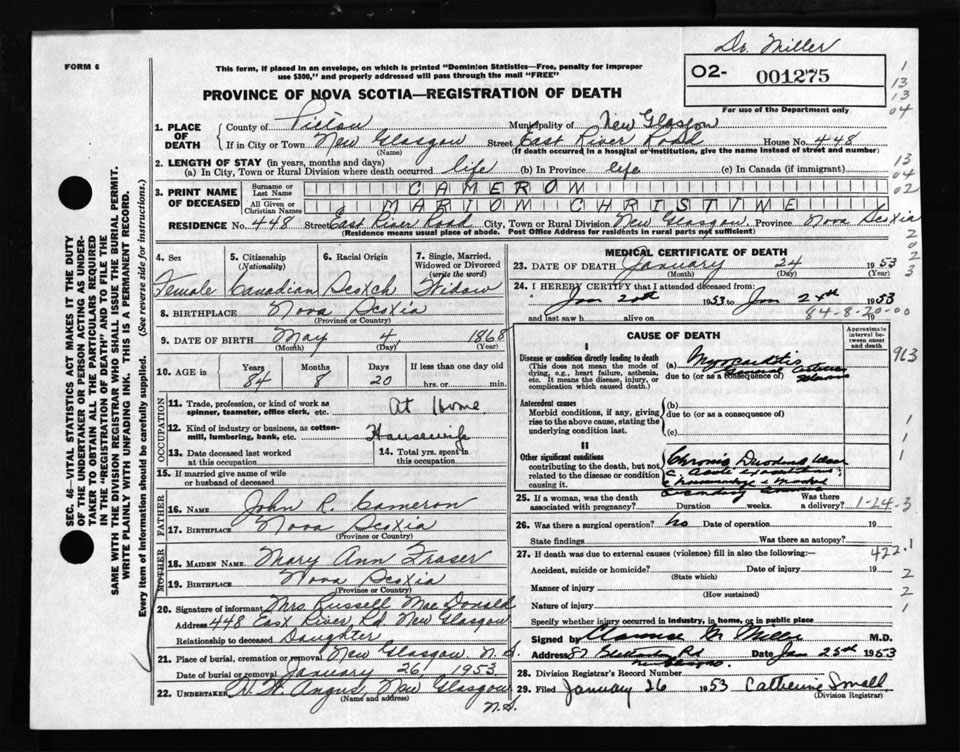 Dr. Miller
FORM 6
This form, if placed in an envelope, on which is printed "Dominion Statistics—Free, penalty for improper
use $300," and properly addressed will pass through the mail "FREE"
O2- 001275
For use of the Department only
PROVINCE OF NOVA SCOTIA—REGISTRATION OF DEATH
1. PLACE OF DEATH
County of Pictou Municipality of New Glasgow
If in City or Town New Glasgow Street East River Road House No. 448
(Name) (If death occurred in a hospital or institution, give the name instead of street and number)
2. LENGTH OF STAY (in years, months and days)
(a) In City, Town or Rural Division where death occurred life (b) In Province life (c) In Canada (if immigrant)
3. PRINT NAME OF DECEASED
Surname or Last Name CAMERON
All Given or Christian Names MARION CHRISTINE
RESIDENCE No. 448 Street East River Road City, Town or Rural Division New Glasgow Province Nova Scotia
(Residence means usual place of abode. Post Office Address for residents in rural parts not sufficient)
SEC. 46—VITAL STATISTICS ACT MAKES IT THE DUTY
OF THE UNDERTAKER OR PERSON ACTING AS UNDER-
TAKER TO OBTAIN ALL THE PARTICULARS REQUIRED
IN THE "REGISTRATION OF DEATH" AND TO FILE THE
SAME WITH THE DIVISION REGISTRAR WHO SHALL ISSUE THE BURIAL PERMIT.
WRITE PLAINLY WITH UNFADING INK. THIS IS A PERMANENT RECORD.
Every item of information should be carefully supplied. (See reverse side for instructions.)
4. Sex 5. Citizenship (Nationality) 6. Racial Origin 7. Single, Married, Widowed or Divorced (write the word)
Female Canadian Scotch Widow
8. BIRTHPLACE Nova Scotia
(Province or Country)
9. DATE OF BIRTH May 4 1868
(Month) (Day) (Year)
10. AGE in Years Months Days If less than one day old
84 8 20 hrs. or min.
OCCUPATION
11. Trade, profession, or kind of work as spinner, teamster, office clerk, etc. At Home
12. Kind of industry or business, as cotton-mill, lumbering, bank, etc. Housewife
13. Date deceased last worked at this occupation
14. Total yrs. spent in this occupation
15. If married give name of wife or husband of deceased
FATHER
16. NAME John R. Cameron
17. BIRTHPLACE Nova Scotia
(Province or Country)
MOTHER
18. MAIDEN NAME Mary Ann Fraser
19. BIRTHPLACE Nova Scotia
(Province or Country)
20. Signature of informant Mrs. Russell MacDonald
Address 448 East River Rd. New Glasgow
Relationship to deceased Daughter
21. Place of burial, cremation or removal New Glasgow N.S.
Date of burial or removal January 26, 1953.
22. UNDERTAKER Angus, New Glasgow
(Name and address)
N.S.
MEDICAL CERTIFICATE OF DEATH
23. DATE OF DEATH January 24 1953
(Month) (Day) (Year)
24. I HEREBY CERTIFY that I attended deceased from:
Jan 20th 1953 to Jan 24th 1953
84-8-20-00
and last saw h alive on 19
CAUSE OF DEATH
Approximate interval between onset and death
I
Disease or condition directly leading to death
(This does not mean the mode of dying, e.g., heart failure, asthenia, etc. It means the disease, injury, or complication which caused death.)
(a) Myocarditis
due to (or as a consequence of) General
Antecedent causes
Morbid conditions, if any, giving rise to the above cause, stating the underlying condition last.
(b)
due to (or as a consequence of)
(c)
II
Other significant conditions
contributing to the death, but not related to the disease or condition causing it.
Chronic Duodenal Ulcer
25. If a woman, was the death associated with pregnancy? Duration weeks. Was there a delivery? 1-24-3
26. Was there a surgical operation? No Date of operation 19
State findings Was there an autopsy?
27. If death was due to external causes (violence) fill in also the following:— 422.1
Accident, suicide or homicide? Date of injury 19
(State which)
Manner of injury
(How sustained)
Nature of injury
Specify whether injury occurred in industry, in home, or in public place
Signed by Clarence M Miller M.D.
Address 87 Rd Date Jan 25th 1953
New Glasgow
28. Division Registrar's Record Number
29. Filed January 26 1953 Catherine Small
(Division Registrar)
1
13
13
04
13
04
02
2
0
2
3
963
1
1
1
2
2
1